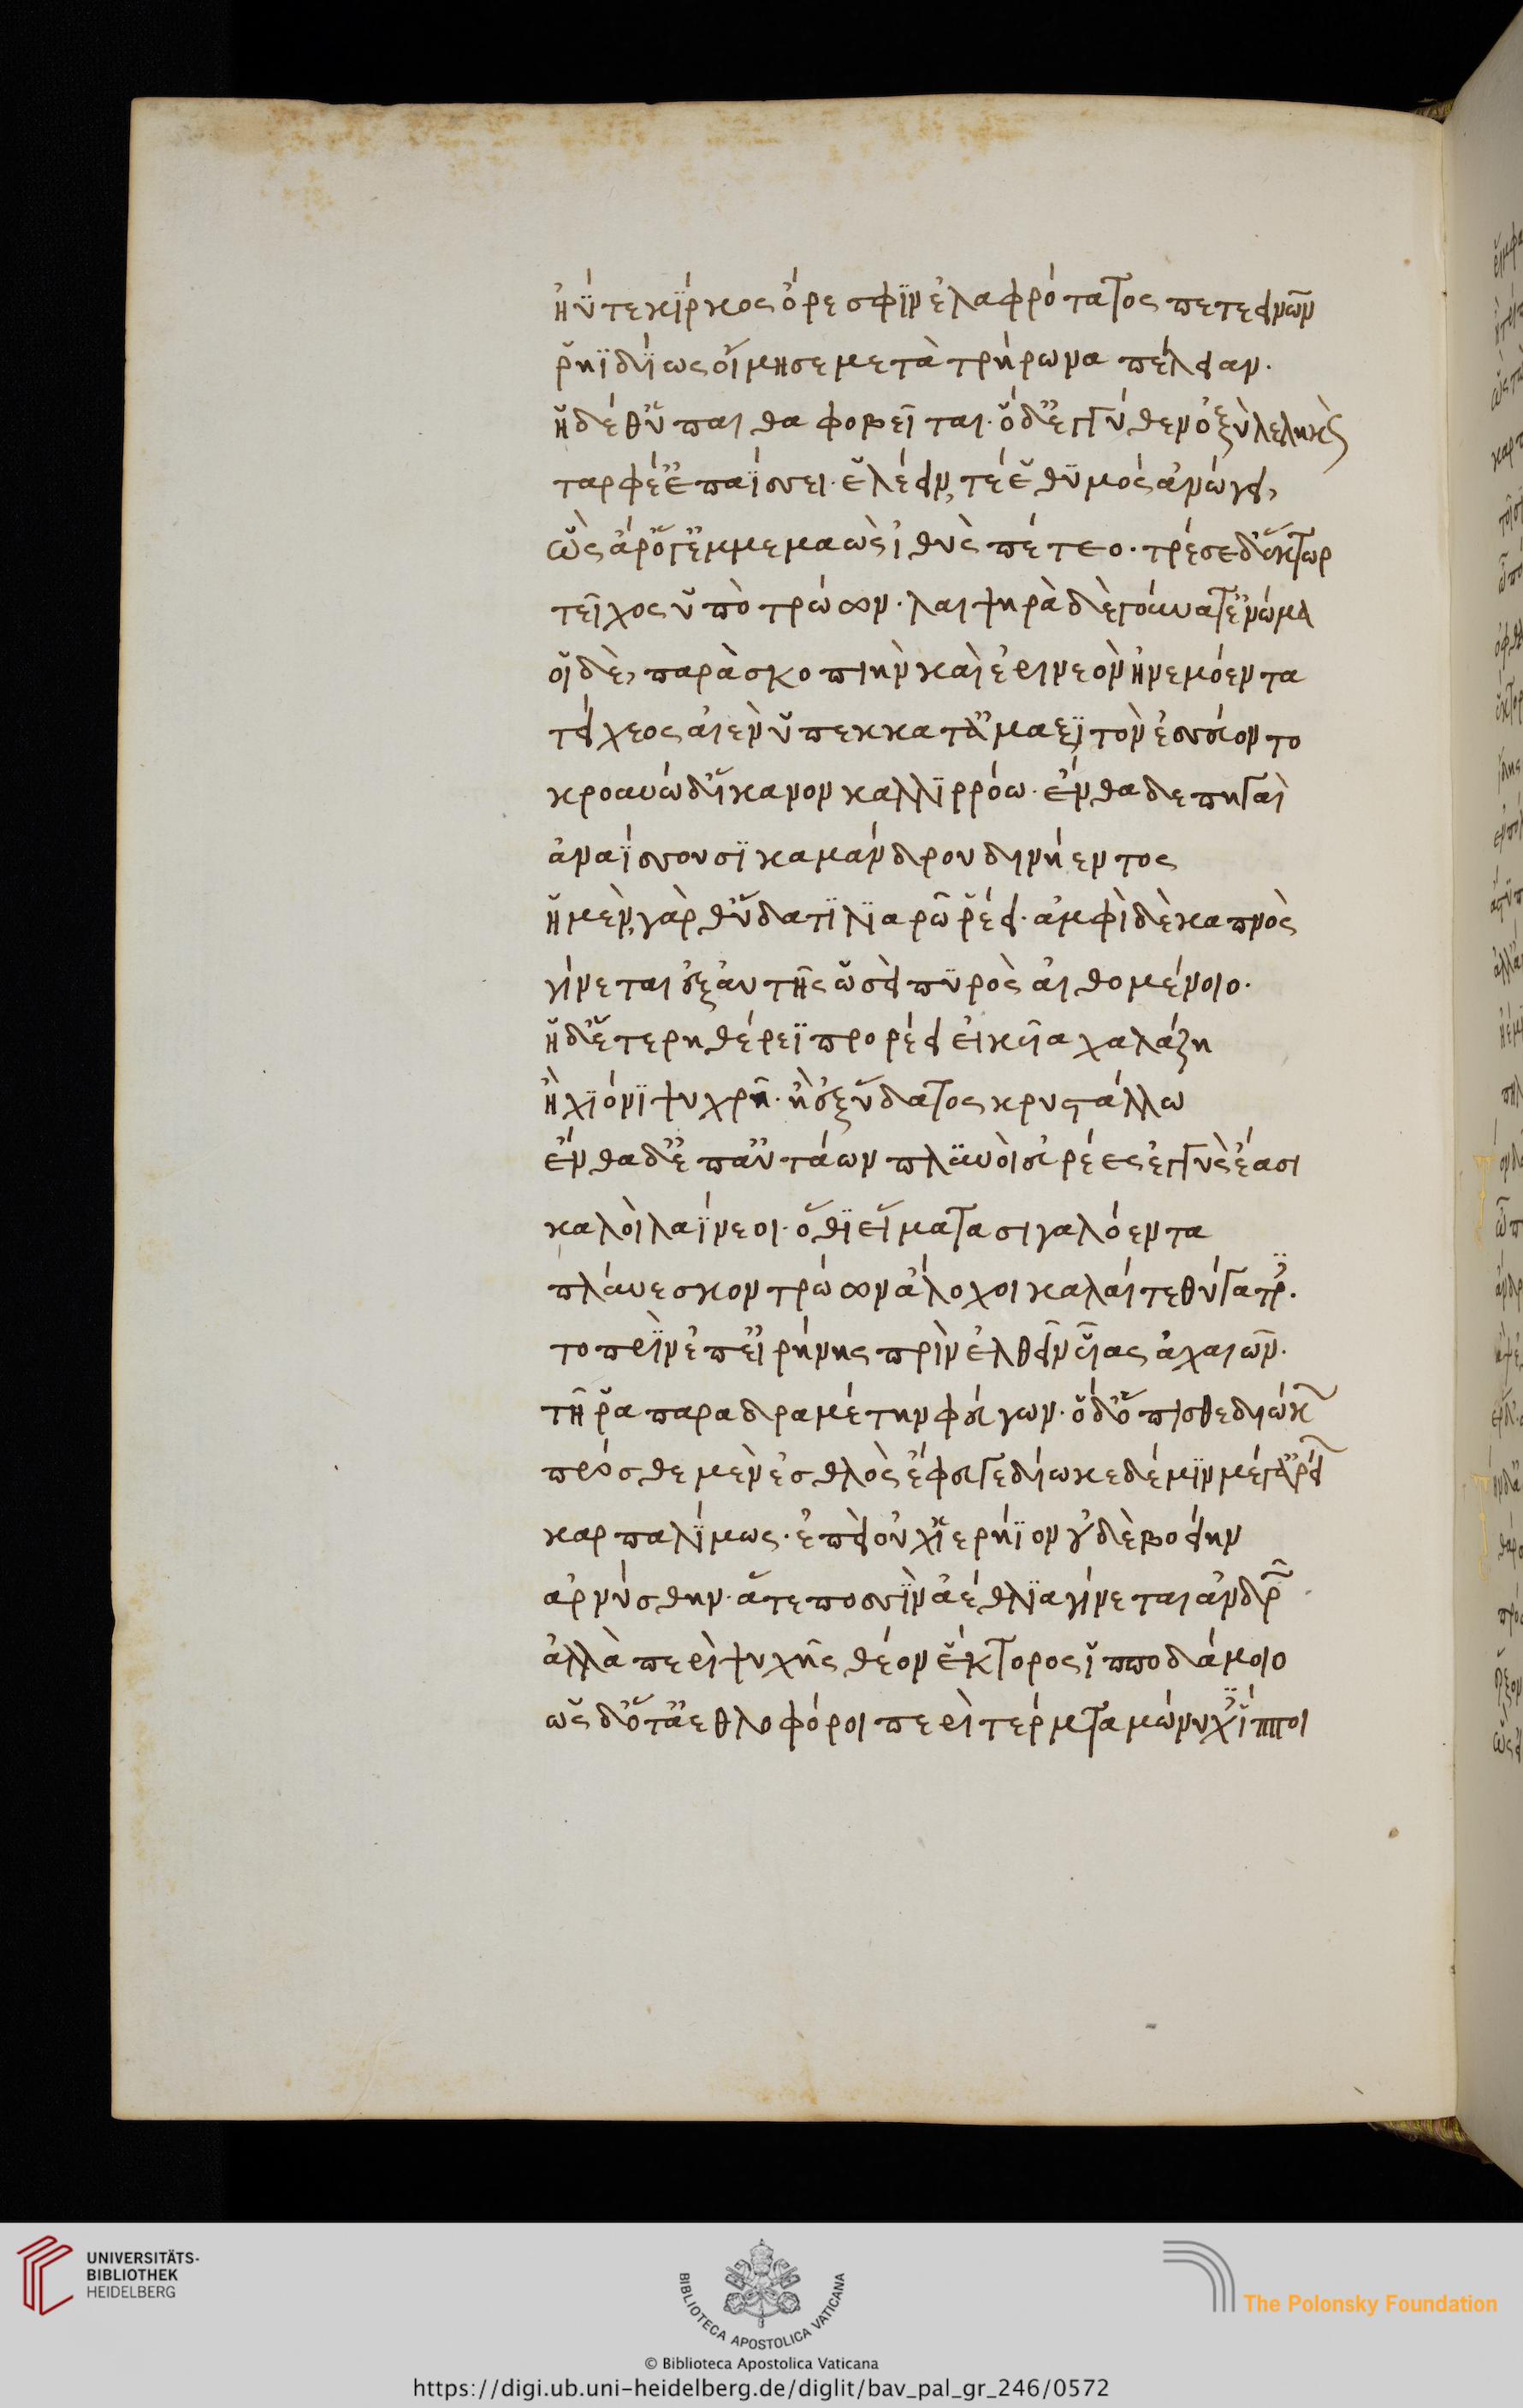 ἠΰτε κίρκος ὄρεσφιν ἐλαφρότατος πετεεινῶν
ῥηϊδίως οἴμησε μετὰ τρήρωνα πέλειαν.
ἡ δέ θ' ὕπαιθα φοβεῖται. ὁ δ' ἐγγύθεν ὀξὺ λεληκὼς
ταρφέ' ἐπαΐσσει. ἑλέειν, τέ ἑ θυμὸς ἀνώγει,
ὣς ἄρ' ὅγ' ἐμμεμαὼς ἰθὺς πέτετο. τρέσε δ' ἕκτωρ
τεῖχος ὑπὸ τρώων. λαιψηρὰ δὲ γούνατ' ἐνώμα
οἱ δὲ, παρὰ σκοπιὴν καὶ ἐρινεὸν ἠνεμόεντα
τείχεος αἰὲν ὑπὲκ κατ' ἀμαξιτὸν ἐσσεύοντο
κρουνὼ δ' ἵκανον καλλιρρόω. ἔνθα δε πηγαὶ
ἀναΐσσουσι καμάνδρου δινήεντος
ἡ μὲν, γὰρ θ' ὕδατι λιαρῶ ῥέει. ἀμφὶ δὲ καπνὸς
γίνεται ἐξ αὐτῆς ὡσεὶ πυρὸς αἰθομένοιο.
ἡ δ' ἑτέρη θέρεϊ προρέει εἰκυῖα χαλάζη
ἢ χιόνι ψυχρῆ. ἢ ἐξ ὕδατος κρυστάλλω
ἔνθα δ' ἐπ' αὐτάων πλυνοὶ εὐρέες ἐγγὺς ἔασι
καλοὶ λαΐνεοι. ὅθι εἵματα σιγαλόεντα
πλύνεσκον τρώων ἄλοχοι καλαί τε θύγατρες.
τοπρὶν ἐπ' εἰρήνης πρὶν ἐλθεῖν υἷας ἀχαιῶν.
τῆ ῥα παραδραμέτην φεύγων. ὁ δ' ὄπισθε διώκων
πρόσθε μὲν ἐσθλὸς ἔφευγε δίωκε δέ μιν μέγ' ἀρείων
καρπαλίμως. ἐπεὶ οὐχ ἱερήϊον οὐδὲ βοείην
ἀρνύσθην. ἅ τε ποσσὶν ἀέθλια γίνεται ἀνδρῶν
ἀλλὰ περὶ ψυχῆς θέον ἕκτορος ἱπποδάμοιο
ὡς δ' ὅτ' ἀεθλοφόροι περὶ τέρματα μώνυχες ἵπποι
UNIVERSITÄTS-
BIBLIOTHEK
HEIDELBERG
BIBLIOTECA APOSTOLICA VATICANA
The Polonsky Foundation
© Biblioteca Apostolica Vaticana
https://digi.ub.uni-heidelberg.de/diglit/bav_pal_gr_246/0572